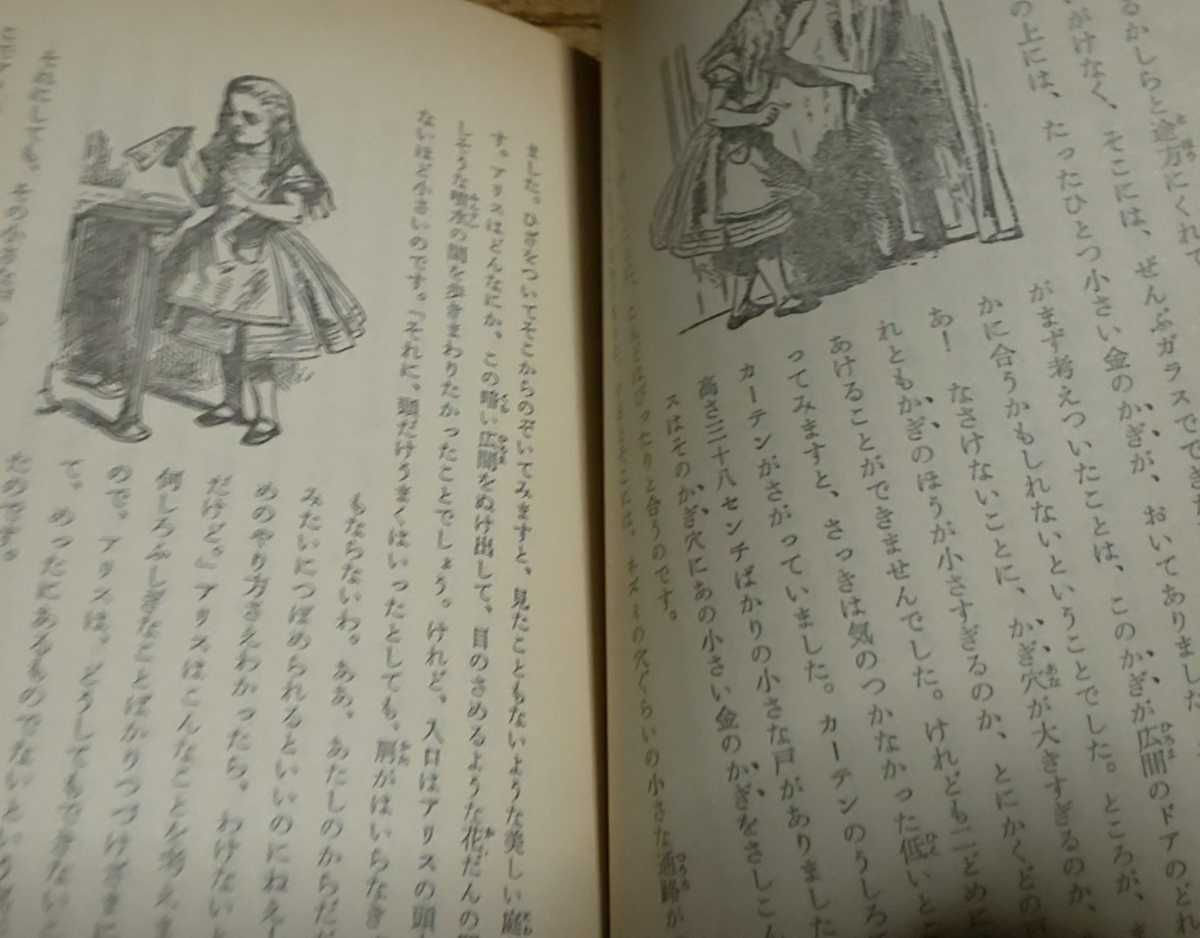 るかしらと途方にくれて
いがけなく、そこには、ぜんぶガラスででき
の上には、たったひとつ小さい金のかぎが、おいてありました
がまず考えついたことは、このかぎが広間のドアのどれ
かに合うかもしれないということでした。ところが、ま
あ! なさけないことに、かぎ穴が大きすぎるのか、そ
れともかぎのほうが小さすぎるのか、とにかくどの戸
あけることができませんでした。けれども二どめに
ってみますと、さっきは気のつかなかった低いと
カーテンがさがっていました。カーテンのうしろ
高さ三十八センチばかりの小さな戸がありました
スはそのかぎ穴にあの小さい金のかぎをさしこん
っとぴったりと合うのです。
ネズミの穴ぐらいの小さな通路が
ました。ひざをついてそこからのぞいてみますと、見たこともないような美しい庭
す。アリスはどんなにか、この暗い広間をぬけ出して、目のさめるような花だんの
しそうな噴水の間を歩きまわりたかったことでしょう。けれど、入口はアリスの頭
ないほど小さいのです。「それに、頭だけうまくはいったとしても、肩がはいらなき
もならないわ。ああ、あたしのからだ
みたいにつぼめられるといいのにねえ
めのやり方さえわかったら、わけない
だけど。」アリスはこんなことを考えま
何しろふしぎなことばかりつづけざまに
ので、アリスは、どうしてもできないこ
て、めったにあるものでないという
たのです。
それにしても、その小さな